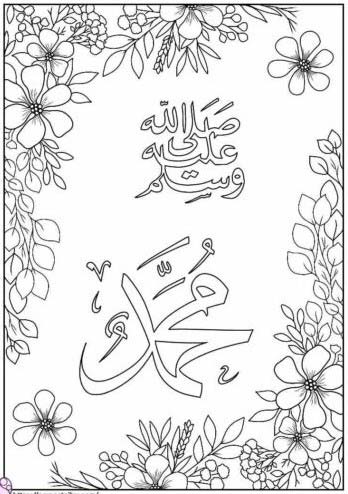 صلى الله
عليه
وسلم
محمد